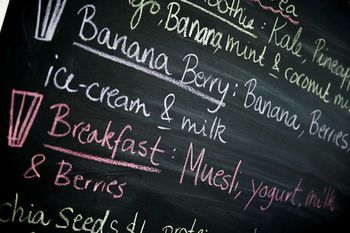 Smoothie: Kale, Pineapp
Banana, mint & coconut mi
Banana Berry: Banana, Berries,
ice-cream & milk
Breakfast: Muesli, yogurt, milk
& Berries
chia Seeds